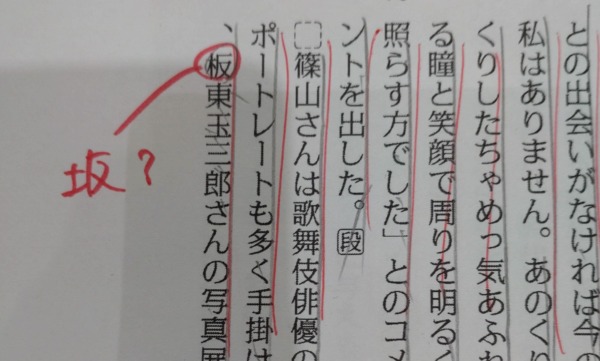 との出会いがなければ今の
私はありません。あのくり
くりしたちゃめっ気あふれ
る瞳と笑顔で周りを明るく
照らす方でした」とのコメ
ントを出した。段
篠山さんは歌舞伎俳優の
ポートレートも多く手掛け
、板東玉三郎さんの写真展
坂？